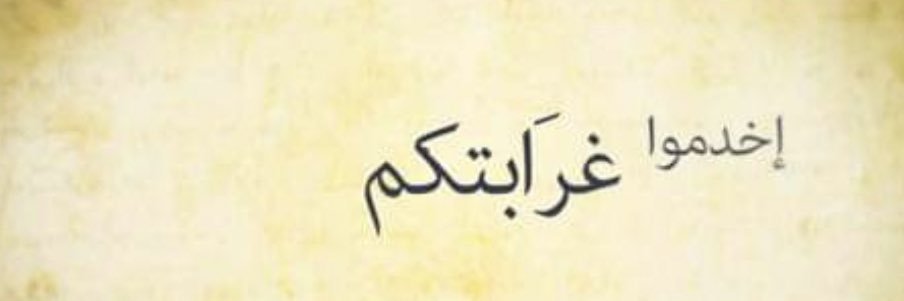 إخدموا غرَابتكم